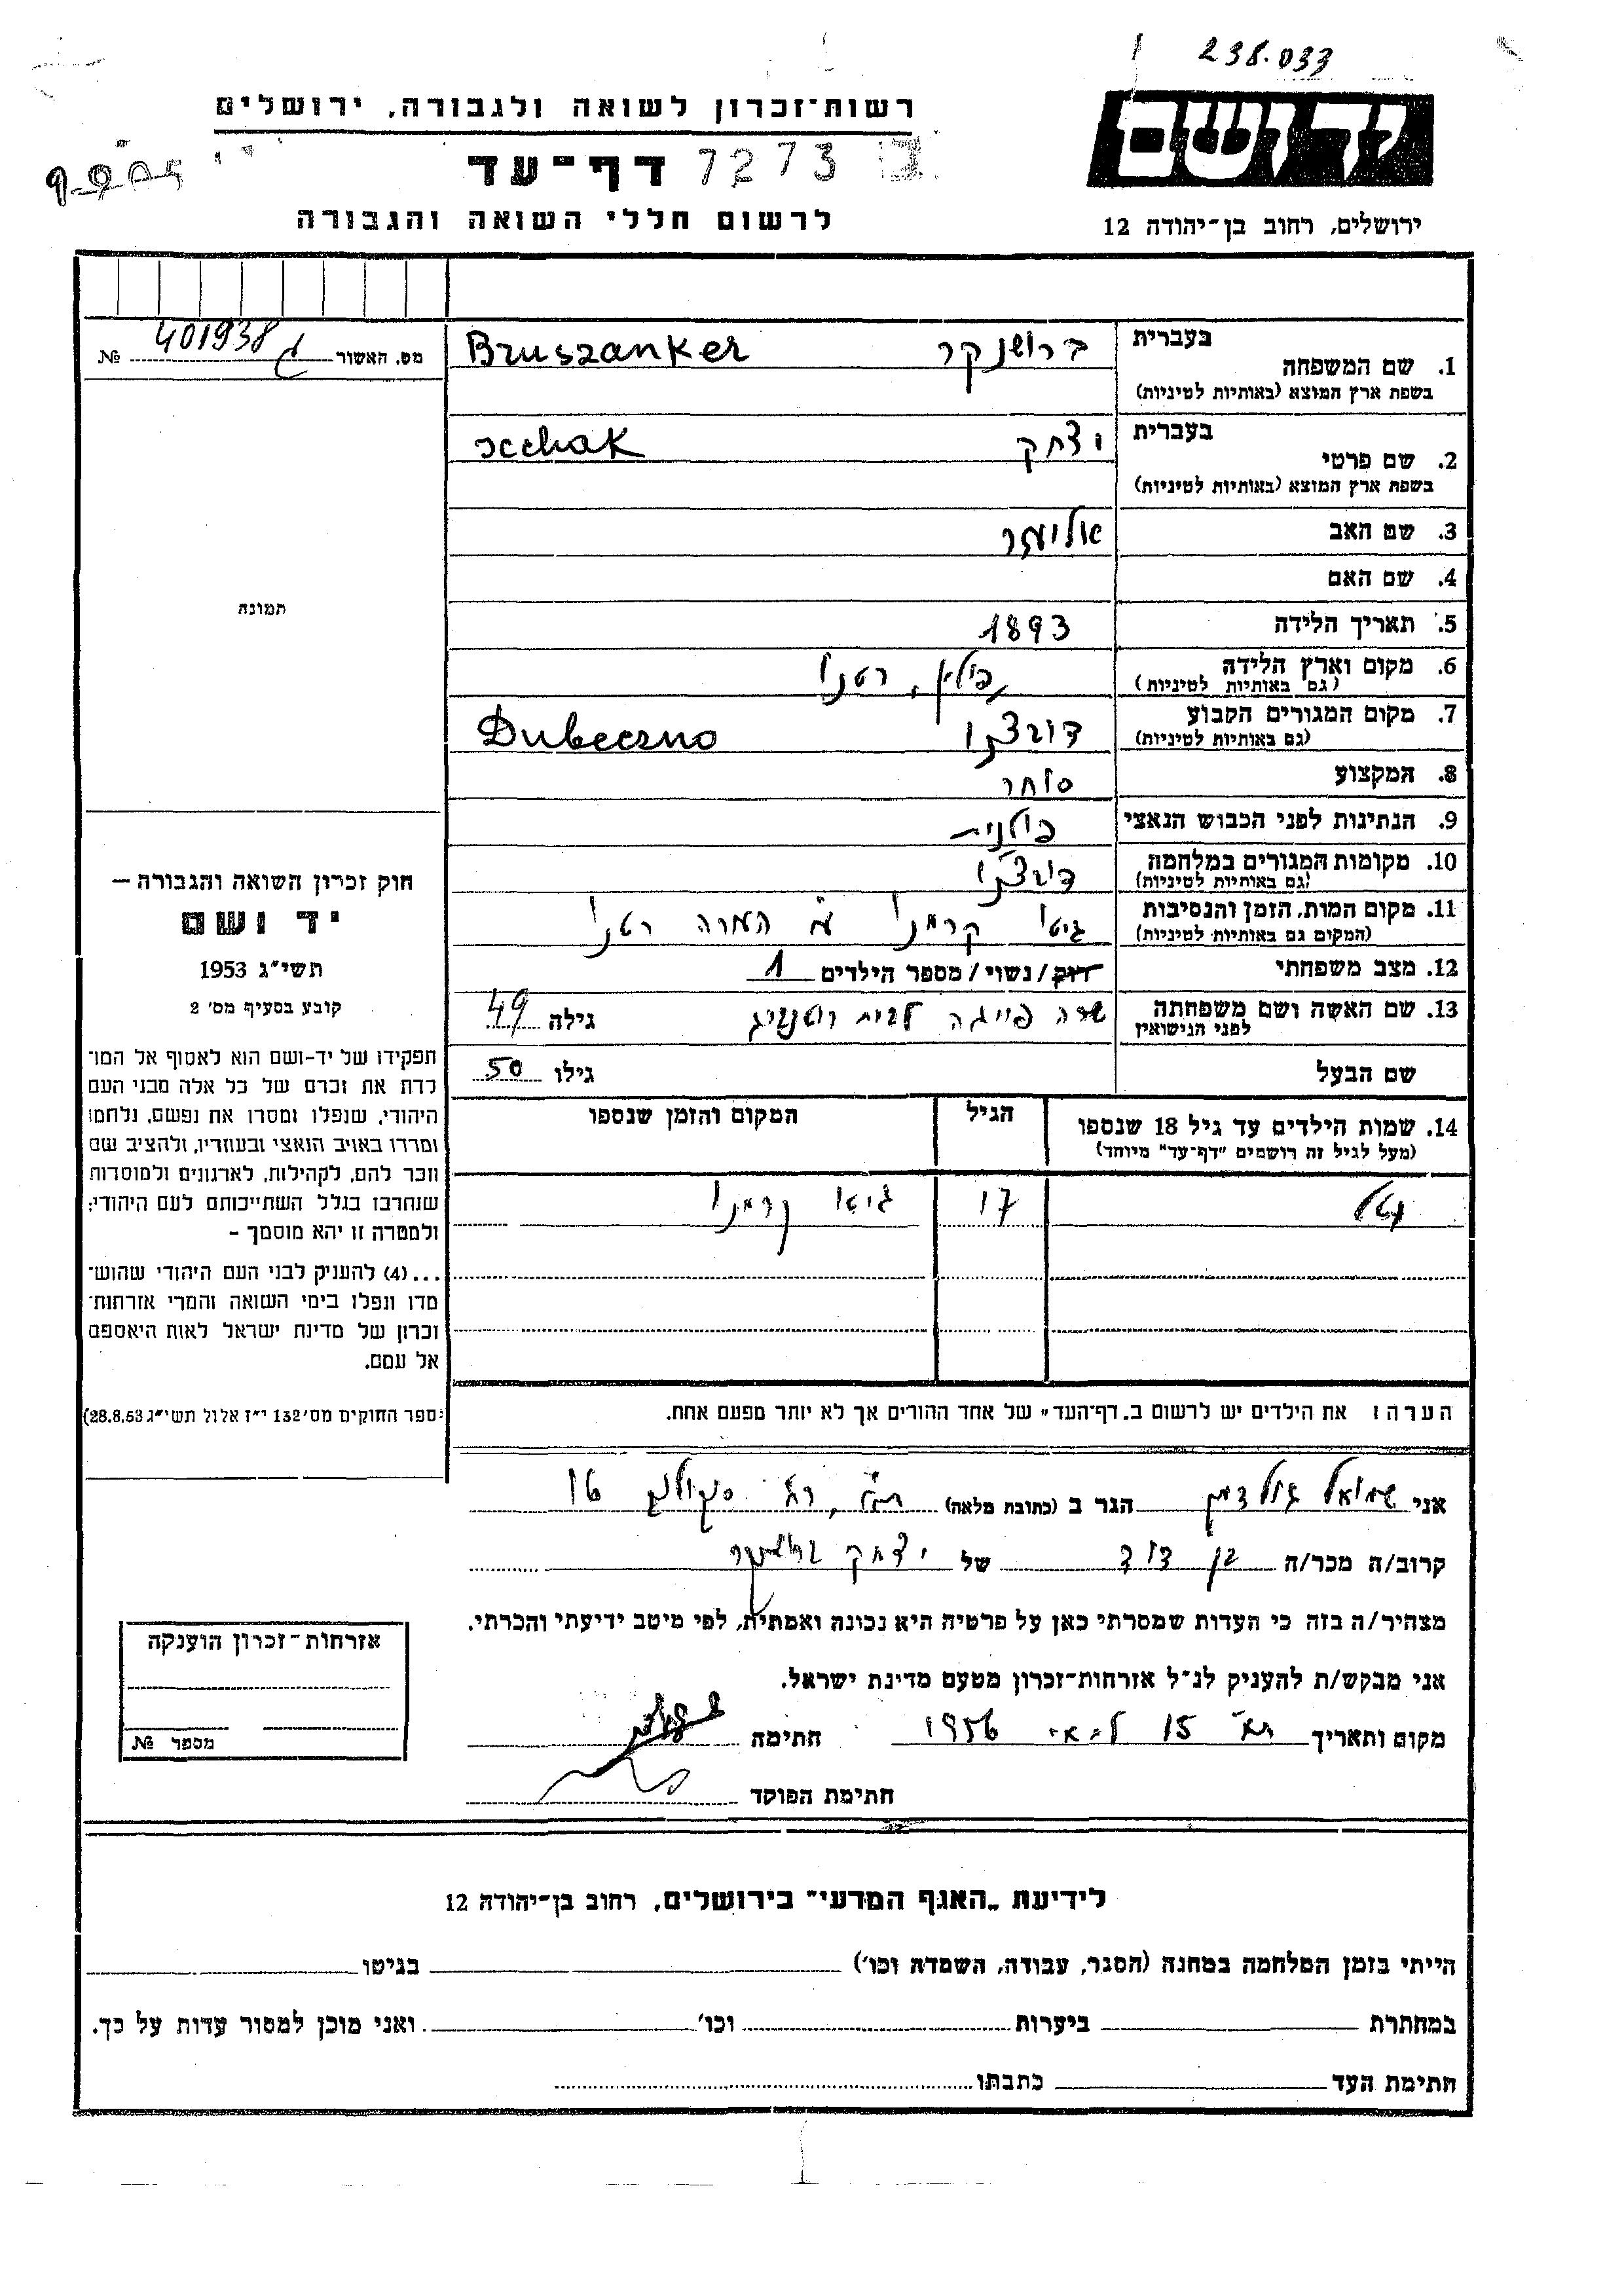 238.033
רשות־זכרון לשואה ולגבורה, ירושלים
יד ושם
דף־עד 7273
לרשום חללי השואה והגבורה
ירושלים, רחוב בן־יהודה 12
בעברית
1. שם המשפחה ברושנקר Bruszanker
בשפת ארץ המוצא (באותיות לטיניות)
מס. האשור 401938 №
בעברית
2. שם פרטי יצחק Icchak
בשפת ארץ המוצא (באותיות לטיניות)
3. שם האב אליעזר
4. שם האם
תמונה
5. תאריך הלידה 1893
6. מקום וארץ הלידה פולין, רטנו
(גם באותיות לטיניות)
7. מקום המגורים הקבוע Dubeczno
(גם באותיות לטיניות)
8. המקצוע סוחר
9. הנתינות לפני הכבוש הנאצי פולנית
10. מקומות המגורים במלחמה
(גם באותיות לטיניות)
11. מקום המות, הזמן והנסיבות גיטו קרמנו רטנו
(המקום גם באותיות לטיניות)
12. מצב משפחתי רווק/נשוי/מספר הילדים 1
13. שם האשה ושם משפחתה שרה פייגה לבית גילה 49
לפני הנישואין
שם הבעל גילו 50
14. שמות הילדים עד גיל 18 שנספו הגיל המקום והזמן שנספו
(מעל לגיל זה רושמים "דף־עד" מיוחד)
17 גיטו קרמנו
הערה: את הילדים יש לרשום ב„דף־העד" של אחד ההורים אך לא יותר מפעם אחת.
חוק זכרון השואה והגבורה —
יד ושם
תשי"ג 1953
קובע בסעיף מס' 2
תפקידו של יד-ושם הוא לאסוף אל המו־
לדת את זכרם של כל אלה מבני העם
היהודי, שנפלו ומסרו את נפשם, נלחמו
ומרדו באויב הנאצי ובעוזריו, ולהציב שם
וזכר להם, לקהילות, לארגונים ולמוסדות
שנחרבו בגלל השתייכותם לעם היהודי;
ולמטרה זו יהא מוסמך —
...(4) להעניק לבני העם היהודי שהוש־
מדו ונפלו בימי השואה והמרי אזרחות־
זכרון של מדינת ישראל לאות היאספם
אל עמם.
(ספר החוקים מס' 132 י"ז אלול תשי"ג 28.8.53)
אני שמואל גולדמן הגר ב (כתובת מלאה) ת"א, רח' סוקולוב 16
קרוב/ה מכר/ה בן דוד של יצחק ברושנקר
מצהיר/ה בזה כי העדות שמסרתי כאן על פרטיה היא נכונה ואמתית, לפי מיטב ידיעתי והכרתי.
אני מבקש/ת להעניק לנ"ל אזרחות־זכרון מטעם מדינת ישראל.
מקום ותאריך ת"א 15 למאי 1956 חתימה
חתימת הפוקד
אזרחות־זכרון הוענקה
מספר №
לידיעת „האגף המדעי" בירושלים, רחוב בן־יהודה 12
הייתי בזמן המלחמה במחנה (הסגר, עבודה, השמדה וכו') בגיטו
במחתרת ביערות וכו' ואני מוכן למסור עדות על כך.
חתימת העד כתבתו